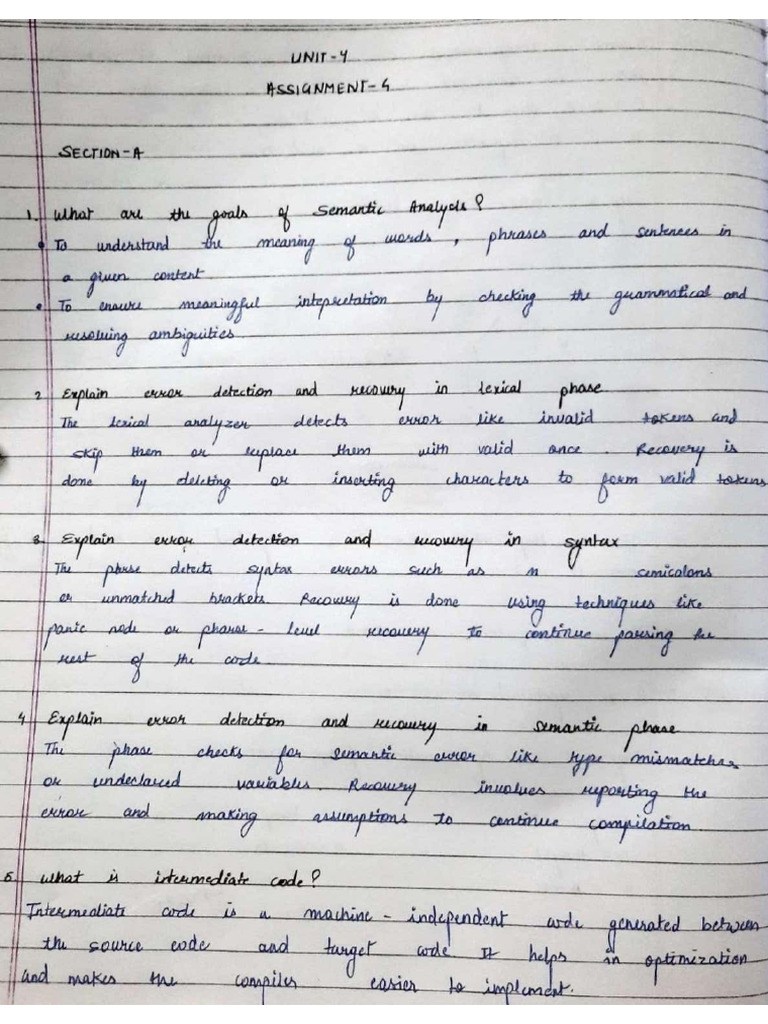 UNIT-4
ASSIGNMENT-4
SECTION-A
1. What are the goals of Semantic Analysis?
• To understand the meaning of words, phrases and sentences in
a given content
• To ensure meaningful intepretation by checking the grammatical and
resolving ambiguities.
2 Explain error detection and recovery in lexical phase
The lexical analyzer detects error like invalid tokens and
skip them or replace them with valid once. Recovery is
done by deleting or inserting characters to form valid tokens
3. Explain error detection and recovery in syntax
The phrse detects syntax errors such as semicolons
or unmatched brackets. Recovery is done using techniques like
panic node or pharse-level recovery to continue parsing the
rest of the code
4 Explain error detection and recovery in semantic phase
The phase checks for semantic error like type mismatches
or undeclared variables. Recovery involves reporting the
error and making assumptions to continue compilation
5. What is intermediate code?
Intermediate code is a machine-independent code generated between
the source code and target code It helps in optimization
and makes the compiler easier to implement.